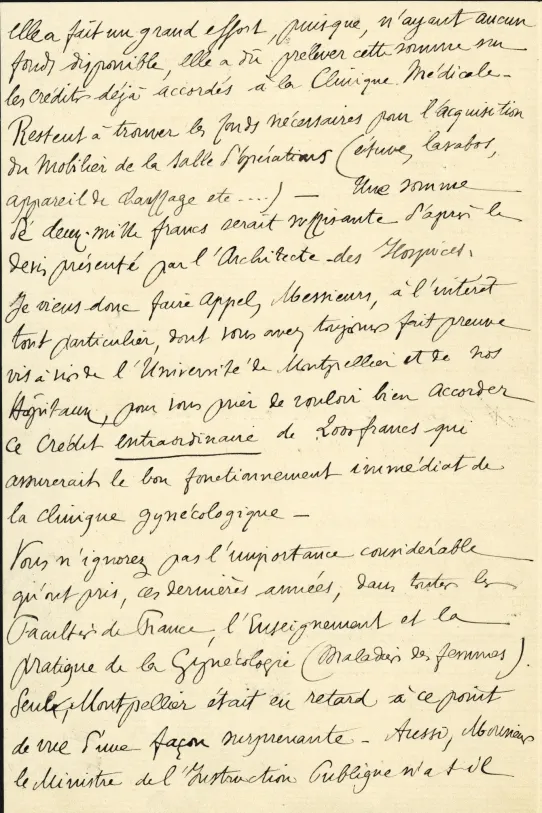 elle a fait un grand effort, puisque, n'ayant aucun
fonds disponible, elle a dû prélever cette somme sur
les crédits déjà accordés à la Clinique Médicale -
Restent à trouver les fonds nécessaires pour l'acquisition
du Mobilier de la Salle d'opérations (étuve, lavabos,
appareil de chauffage etc ....) — Une somme
de deux-mille francs serait suffisante d'après le
devis présenté par l'Architecte des Hospices.
Je viens donc faire appel, Messieurs, à l'intérêt
tout particulier, dont vous avez toujours fait preuve
vis à vis de l'Université de Montpellier et de nos
Hôpitaux, pour vous prier de vouloir bien accorder
ce Crédit extraordinaire de 2000 francs qui
assurerait le bon fonctionnement immédiat de
la clinique gynécologique —
Vous n'ignorez pas l'importance considérable
qu'ont pris, ces dernières années, dans toutes les
Facultés de France, l'Enseignement et la
pratique de la Gynécologie (Maladies des femmes).
Seul, Montpellier était en retard à ce point
de vue d'une façon surprenante - Aussi, Monsieur
le Ministre de l'Instruction Publique n'a t-il